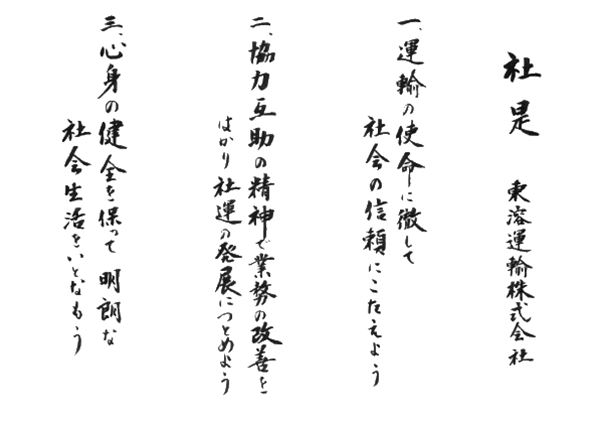 社是
東溶運輸株式会社
一、運輸の使命に徹して
社会の信頼にこたえよう
二、協力互助の精神で業務の改善を
はかり社運の発展につとめよう
三、心身の健全を保って明朗な
社会生活をいとなもう